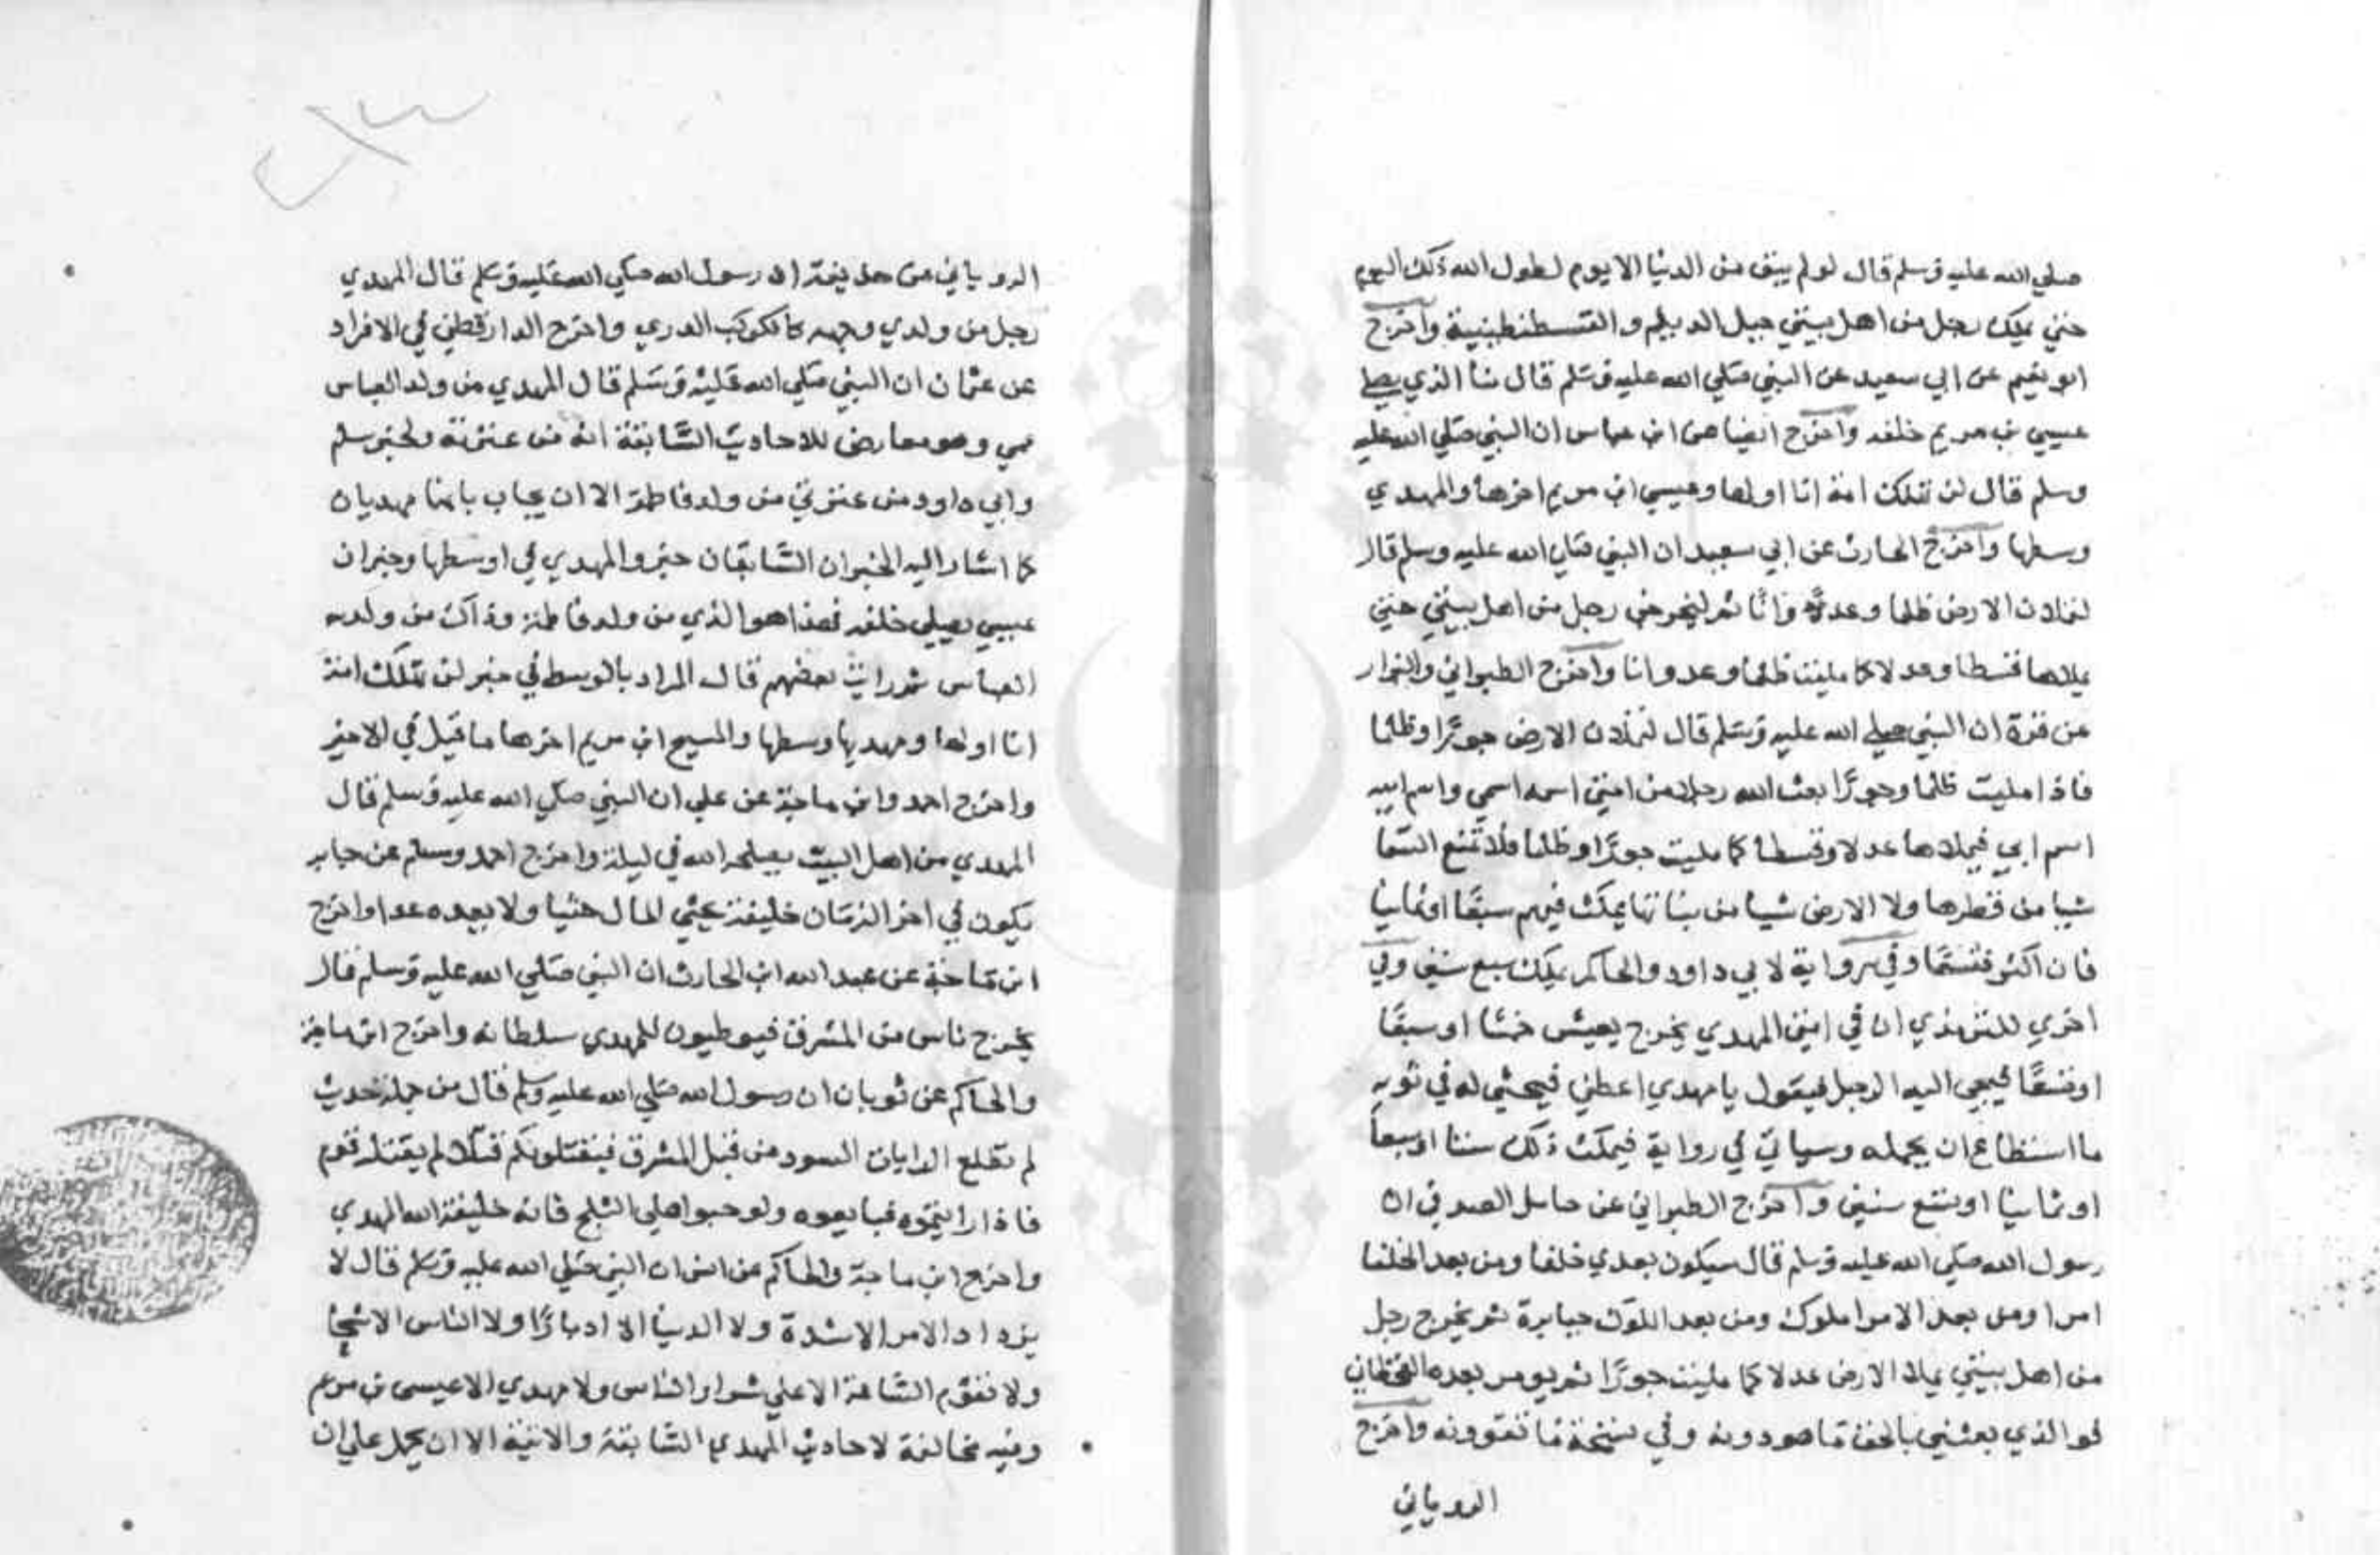 صلي الله عليه وسلم قال لو لم يبق من الدنيا الا يوم لطول الله ذلك اليوم
حتي يملك رجل من اهل بيتي جبل الديلم والقسطنطينية واخرج
ابو نعيم عن ابي سعيد عن النبي صلي الله عليه وسلم قال منا الذي يصلي
عيسي بن مريم خلفه واخرج ايضا عن ابن عباس ان النبي صلي الله عليه
وسلم قال لن تهلك امة انا اولها وعيسي ابن مريم اخرها والمهدي
وسطها واخرج الحارث عن ابي سعيد ان النبي صلي الله عليه وسلم قال
لتملان الارض ظلما وعدوانا ثم ليخرجن رجل من اهل بيتي حتي
يملاها قسطا وعدلا كما مليت ظلما وعدوانا واخرج الطبراني والبزار
عن قرة ان النبي صلي الله عليه وسلم قال لتملان الارض جورًا وظلما
فاذا مليت ظلما وجورًا بعث الله رجلا من امتي اسمه اسمي واسم ابيه
اسم ابي فيملاها عدلا وقسطا كما مليت جورًا وظلما فلا تمنع السما
شيا من قطرها ولا الارض شيا من نباتها يمكث فيهم سبعًا او ثمانيا
فان اكثر فتسعًا وفي رواية لابي داود والحاكم يملك سبع سنين وفي
اخري للترمذي ان في امتي المهدي يخرج يعيش خمسًا او سبعًا
او تسعًا فيجي اليه الرجل فيقول يا مهدي اعطني فيحثي له في ثوبه
ما استطاع ان يحمله وسياتي في رواية فيمكث ذلك ستا او سبعاً
او ثمانيا او تسع سنين واخرج الطبراني عن حامل الصدفي ان
رسول الله صلي الله عليه وسلم قال سيكون بعدي خلفا ومن بعد الخلفا
امرا ومن بعد الامرا ملوك ومن بعد الملوك جبابرة ثم يخرج رجل
من اهل بيتي يملا الارض عدلا كما مليت جورًا ثم يومر بعده القحطاني
فوالذي بعثني بالحق ما هو دونه وفي نسخة ما تقوونه واخرج
الروياني
الروياني عن حذيفة ان رسول الله صلي الله عليه وسلم قال المهدي
رجل من ولدي وجهه كالكوكب الدري واخرج الدارقطني في الافراد
عن عثمان ان النبي صلي الله عليه وسلم قال المهدي من ولد العباس
عمي وهو معارض للاحاديث السابقة انه من عترته ولخبر مسلم
وابي داود من عترتي من ولد فاطمة الا ان يجاب بانهما مهديان
كما اشار اليه الخبران السابقان خبر والمهدي في اوسطها وخبر ان
عيسي يصلي خلفه فهذا هو الذي من ولد فاطمة وذاك من ولد
العباس ثم رايت بعضهم قال المراد بالوسط في خبر لن تهلك امة
انا اولها ومهديها وسطها والمسيح ابن مريم اخرها ما قبل في الاخير
واخرج احمد وابن ماجة عن علي ان النبي صلي الله عليه وسلم قال
المهدي من اهل البيت يصلحه الله في ليلة واخرج احمد ومسلم عن جابر
يكون في اخر الزمان خليفة يحثي المال حثيا ولا يعده عدا واخرج
ابن ماجة عن عبد الله ابن الحارث ان النبي صلي الله عليه وسلم قال
يخرج ناس من المشرق فيوطيون للمهدي سلطانه واخرج ابن ماجة
والحاكم عن ثوبان ان رسول الله صلي الله عليه وسلم قال من جملة حديث
ثم تطلع الرايات السود من قبل المشرق فيقتلونكم قتلا لم يقتله قوم
فاذا رايتموه فبايعوه ولو حبوا علي الثلج فانه خليفة الله المهدي
واخرج ابن ماجة والحاكم عن انس ان النبي صلي الله عليه وسلم قال لا
يزداد الامر الا شدة ولا الدنيا الا ادبارًا ولا الناس الا شحا
ولا تقوم الساعة الا علي شرار الناس ولا مهدي الا عيسي بن مريم
وفيه مخالفة لاحاديث المهدي السابقة والاتية الا ان يحمل علي ان